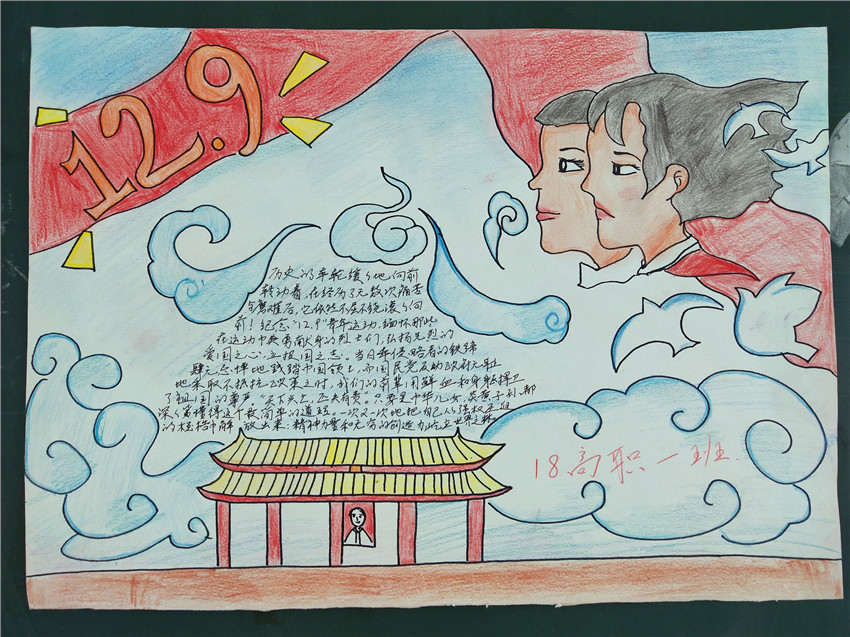 12.9
历史的车轮缓缓地向前
转动着,在经历了无数次痛苦
与磨难后,它依然不屈不挠滚滚向
前!纪念"12.9"青年运动,缅怀那些
在运动中英勇献身的烈士们,弘扬先烈的
爱国之心,立报国之志。当日寇侵略者的铁蹄
肆无忌惮地践踏中国领土,而国民党反动政府无耻
地采取不抵抗政策之时,我们的前辈用鲜血和身躯捍卫
了祖国的尊严。"天下兴亡,匹夫有责"只要是中华儿女,炎黄子孙,都
深深懂得这个最简单的道理。一次又一次地把自己从强权压迫
的桎梏中解放出来,精神力量和无穷的创造力屹立世界之林
18高职一班.